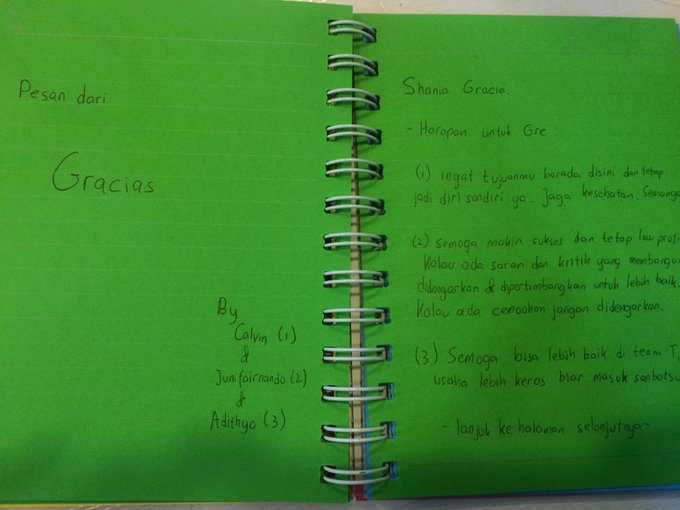 Pesan dari
Gracias
By
Calvin (1)
&
Junifairnando (2)
&
Adithya (3)
Shania Gracia.
- Harapan untuk Gre :
(1) ingat tujuanmu berada disini dan tetap
jadi diri sendiri ya. Jaga kesehatan Semanga
(2) semoga makin sukses dan tetap low profi
Kalau ada saran dan kritik yang membangun
didengarkan & dipertimbangkan untuk lebih baik.
Kalau ada cemoohan jangan didengarkan.
(3) Semoga bisa lebih baik di team T,
usaha lebih keras biar masuk senbatsu
- lanjut ke halaman selanjutnya -